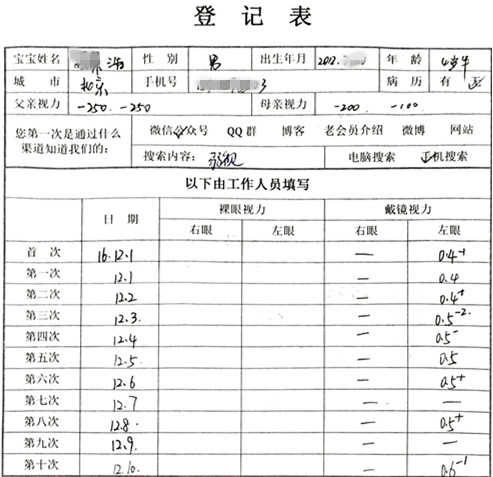 登记表
宝宝姓名 浩 性别 男 出生年月 2012. 年龄 4岁半
城市 北京 手机号 3 病历 有 无
父亲视力 -250. -250 母亲视力 -200 -100
您第一次是通过什么 微信公众号 QQ群 博客 老会员介绍 微博 网站
渠道知道我们的: 搜索内容: 弱视 电脑搜索 手机搜索
以下由工作人员填写
日期 裸眼视力 戴镜视力
右眼 左眼 右眼 左眼
首次 16.12.1 — 0.4⁻¹
第一次 12.1 — 0.4
第二次 12.2 — 0.4⁺
第三次 12.3 — 0.5⁻²
第四次 12.4 — 0.5⁻
第五次 12.5 — 0.5
第六次 12.6 — 0.5⁺
第七次 12.7 — —
第八次 12.8 — 0.5⁺
第九次 12.9 — —
第十次 12.10 — 0.6⁻¹